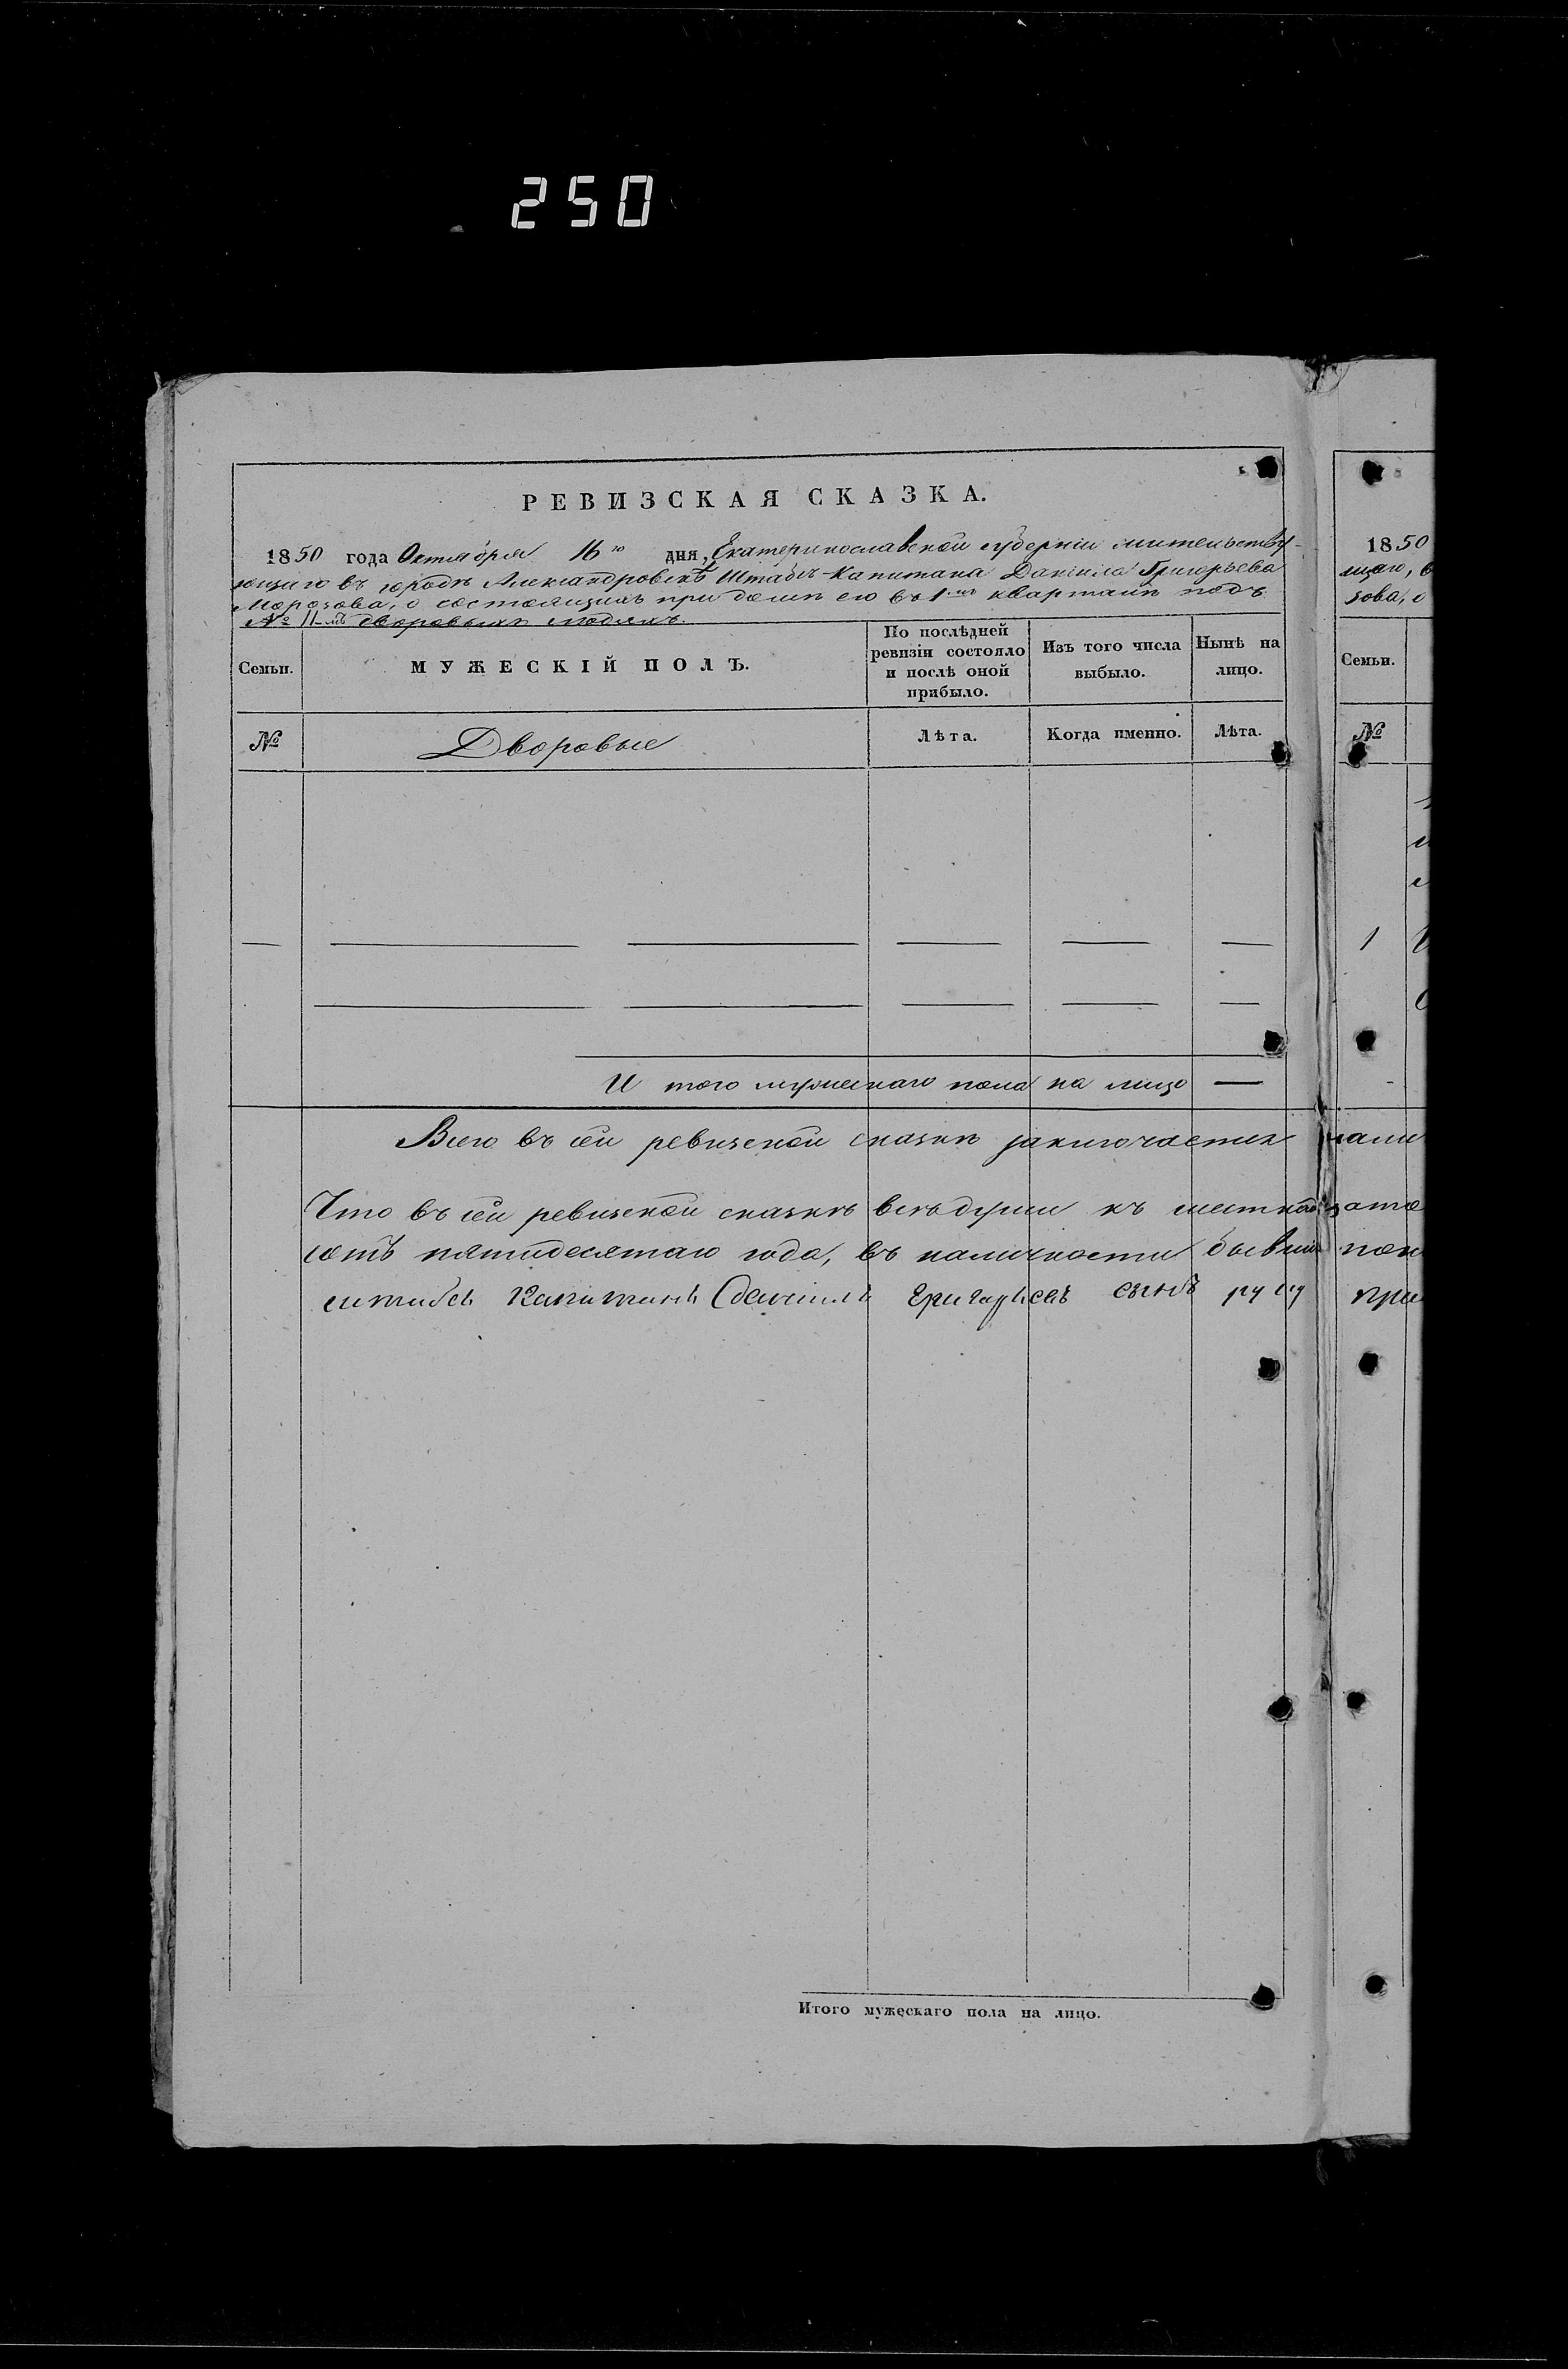 250
РЕВИЗСКАЯ СКАЗКА.
1850 года Октября 16го дня, Екатеринославской губерніи жительству-
ющаго въ городѣ Александровскѣ Штабсъ-Капитана Даніила Григорьева
Морозова, о состоящихъ при домѣ его въ 1мъ кварталѣ подъ
№ 11мъ дворовыхъ людяхъ.
Семьи. МУЖЕСКІЙ ПОЛЪ. По послѣдней ревизіи состояло и послѣ оной прибыло. Изъ того числа выбыло. Нынѣ на лицо.
№ Дворовые Лѣта. Когда именно. Лѣта.
И того мужескаго пола на лицо —
Всего въ сей ревизской сказкѣ заключается
Что въ сей ревизской сказкѣ всѣ души къ
сотъ пятидесятаго года, въ наличности бывшія
штабсъ Капитанъ Даніилъ Григорьевъ сынъ руку
Итого мужескаго пола на лицо.
1850
щаго, в
зова, о
Семьи.
№
1
при